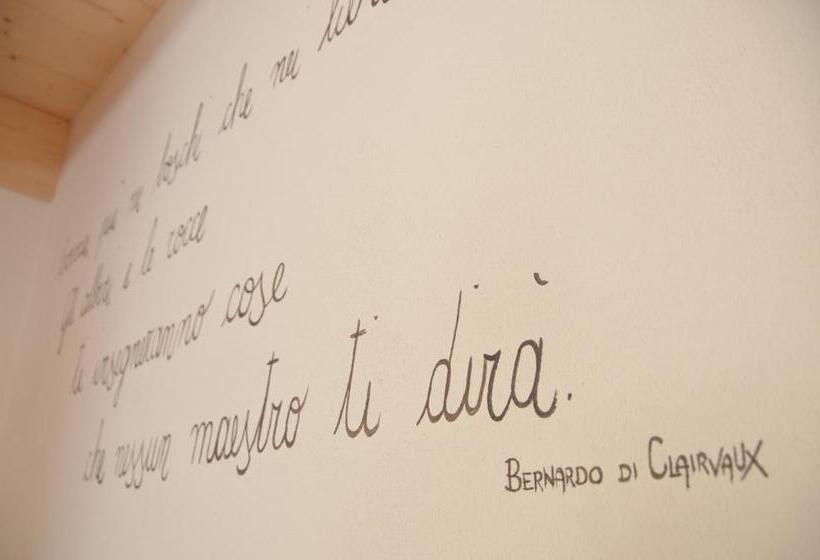 più in boschi che nei libri
gli alberi e le rocce
ti insegneranno cose
che nessun maestro ti dirà.
BERNARDO DI CLAIRVAUX